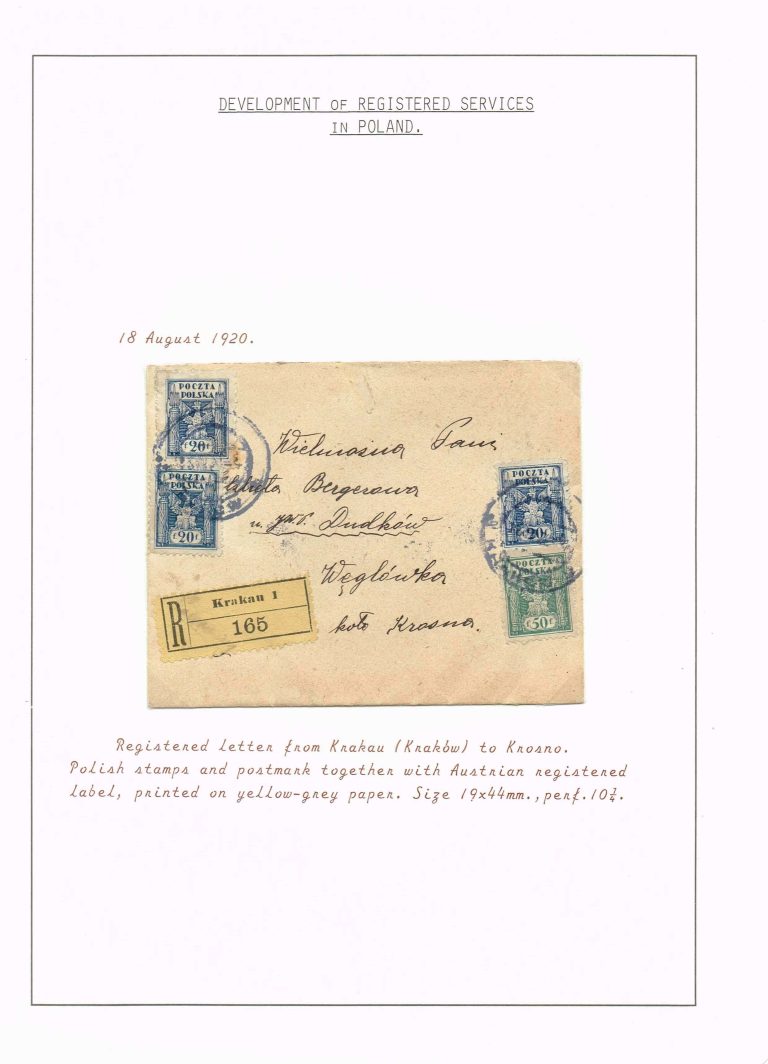 DEVELOPMENT OF REGISTERED SERVICES
IN POLAND.
18 August 1920.
POCZTA
POLSKA
f20f
POCZTA
POLSKA
f20f
Wielmożna Pani
Bergerowa
u. Dudków
Węglówka
koło Krosna.
POCZTA
POLSKA
f20f
POCZTA
POLSKA
f50f
R
Krakau 1
165
Registered letter from Krakau (Kraków) to Krosno.
Polish stamps and postmark together with Austrian registered
label, printed on yellow-grey paper. Size 19x44mm.,perf.10¾.